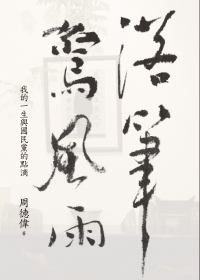 落筆
驚風雨
我的一生與國民黨的點滴
周德偉 著